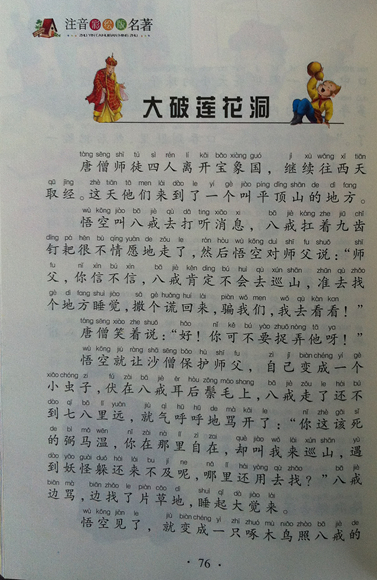 注音彩绘版名著
ZHU YIN CAIHUIBAN MING ZHU
大破莲花洞
táng sēng shī tú sì rén lí kāi bǎo xiàng guó jì xù wǎng xī tiān
唐僧师徒四人离开宝象国，继续往西天
qǔ jīng zhè tiān tā men lái dào le yí gè jiào píng dǐng shān de dì fang
取经。这天他们来到了一个叫平顶山的地方。
wù kōng jiào bā jiè qù dǎ tīng xiāo xi bā jiè káng zhe jiǔ chǐ
悟空叫八戒去打听消息，八戒扛着九齿
dīng pá hěn bù qíng yuàn de zǒu le rán hòu wù kōng duì shī fu shuō shī
钉耙很不情愿地走了，然后悟空对师父说：“师
fu nǐ xìn bú xìn bā jiè kěn dìng bú huì qù xún shān zhǔn qù zhǎo
父，你信不信，八戒肯定不会去巡山，准去找
gè dì fang shuì jiào sā gè huǎng huí lái piàn wǒ men wǒ qù kàn kan
个地方睡觉，撒个谎回来，骗我们，我去看看！”
táng sēng xiào zhe shuō hǎo nǐ kě bú yào zhuō nòng tā ya
唐僧笑着说：“好！你可不要捉弄他呀！”
wù kōng jiù ràng shā sēng bǎo hù shī fu zì jǐ biàn chéng yí gè
悟空就让沙僧保护师父，自己变成一个
xiǎo chóng zi fú zài bā jiè ěr hòu zōng máo shang bā jiè zǒu le hái bú
小虫子，伏在八戒耳后鬃毛上，八戒走了还不
dào qī bā lǐ yuǎn jiù qì hū hū de mà kāi le nǐ zhè gāi sǐ
到七八里远，就气呼呼地骂开了：“你这该死
de bì mǎ wēn nǐ zài nà lǐ zì zai què jiào wǒ lái xún shān yù
的弼马温，你在那里自在，却叫我来巡山，遇
dào yāo guài duǒ hái lái bu jí ne nǎ lǐ hái yòng qù zhǎo bā jiè
到妖怪躲还来不及呢，哪里还用去找？”八戒
biān mà biān zhǎo le piàn cǎo dì shuì qǐ dà jiào lái
边骂，边找了片草地，睡起大觉来。
wù kōng jiàn le jiù biàn chéng yì zhī zhuó mù niǎo zhào bā jiè de
悟空见了，就变成一只啄木鸟照八戒的
· 76 ·